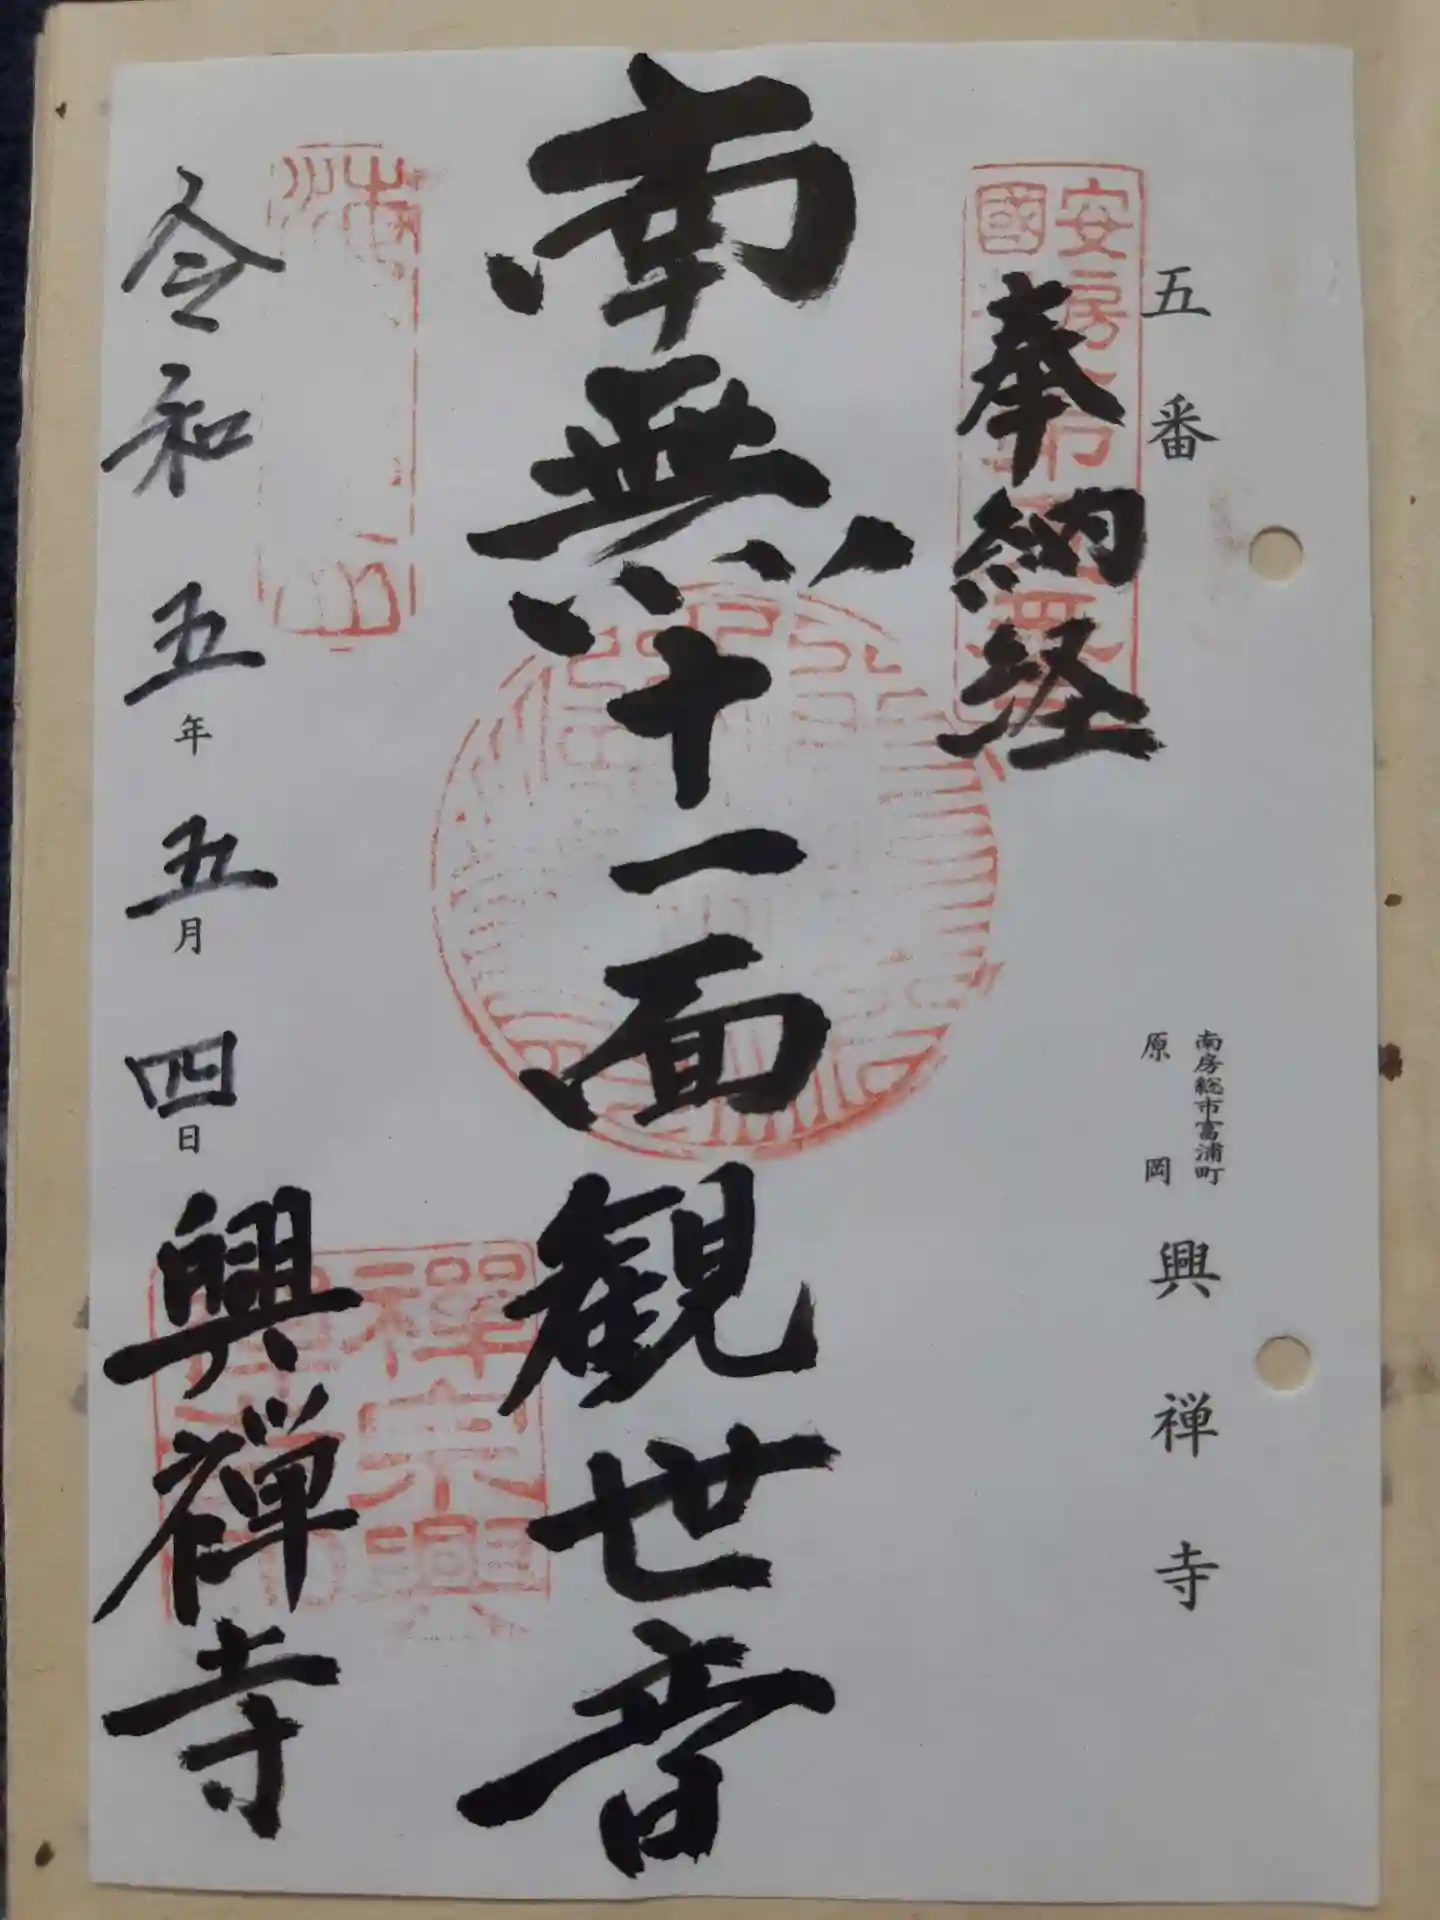 五番
南房総市富浦町
原岡
興禅寺
奉納経
南無十一面観世音
令和五年五月四日
興禅寺
禅宗興